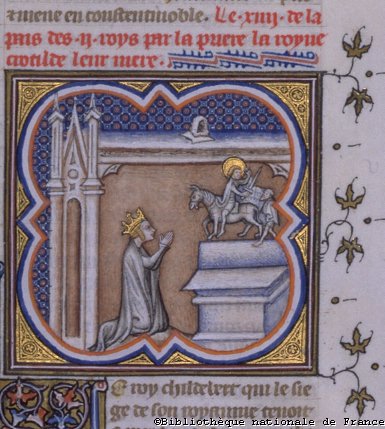 amene en constentinoble. Le .xiiij. de la
pais des .ij. roys par la priere la royne
crotilde leur mere.
Le roy childebert qui le sie
ge de son royaume tenoit
©Bibliothèque nationale de France